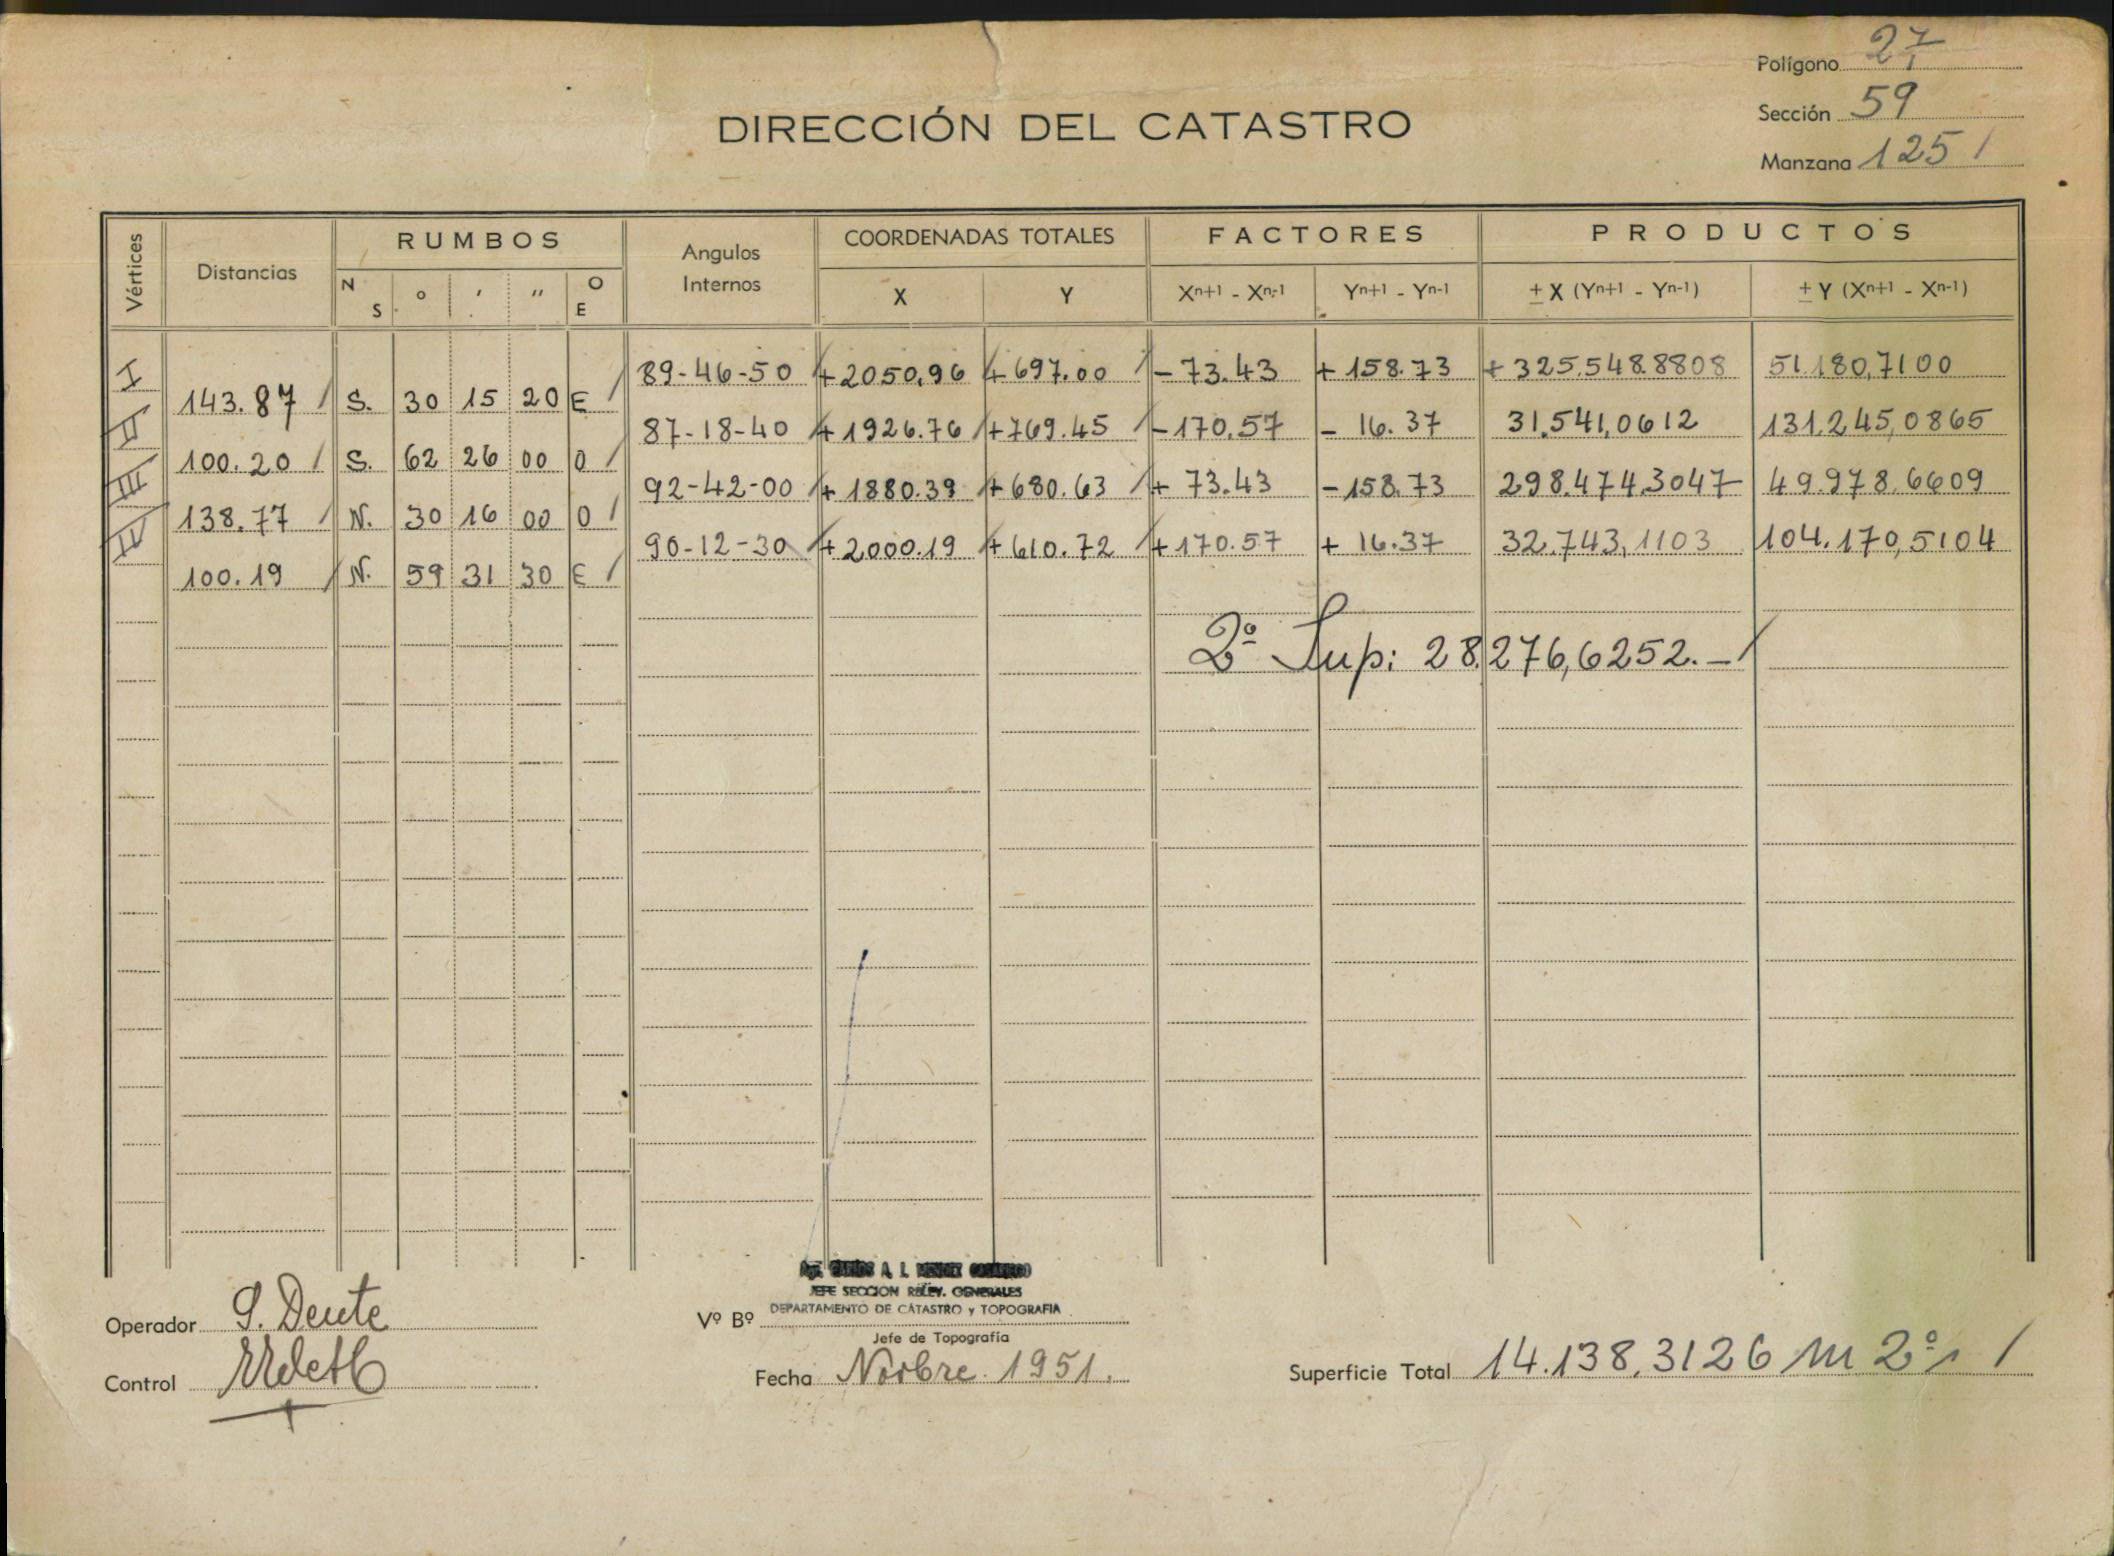 Polígono 27
Sección 59
Manzana 125
DIRECCIÓN DEL CATASTRO
Vértices Distancias RUMBOS Angulos Internos COORDENADAS TOTALES FACTORES PRODUCTOS
N S ° ' '' O E X Y Xn+1 - Xn-1 Yn+1 - Yn-1 ± X (Yn+1 - Yn-1) ± Y (Xn+1 - Xn-1)
I 89-46-50 +2050,96 +697.00 -73.43 +158.73 +325.548.8808 51.180,7100
143.87 S. 30 15 20 E
II 87-18-40 +1926.76 +769.45 -170.57 - 16.37 31.541,0612 131.245,0865
100.20 S. 62 26 00 O
III 92-42-00 +1880.39 +680.63 + 73.43 -158.73 298.474.3047 49.978.6609
138.77 N. 30 16 00 O
IV 90-12-30 +2000.19 +610.72 +170.57 + 16.37 32.743,1103 104.170,5104
100.19 N. 59 31 30 E
2º Sup: 28.276,6252.-
JEFE SECCION RELEV. GENERALES
DEPARTAMENTO DE CATASTRO y TOPOGRAFIA
Operador S. Deute
Vº Bº
Jefe de Topografía
Control
Fecha Novbre. 1951.
Superficie Total 14.138,3126 m 2º